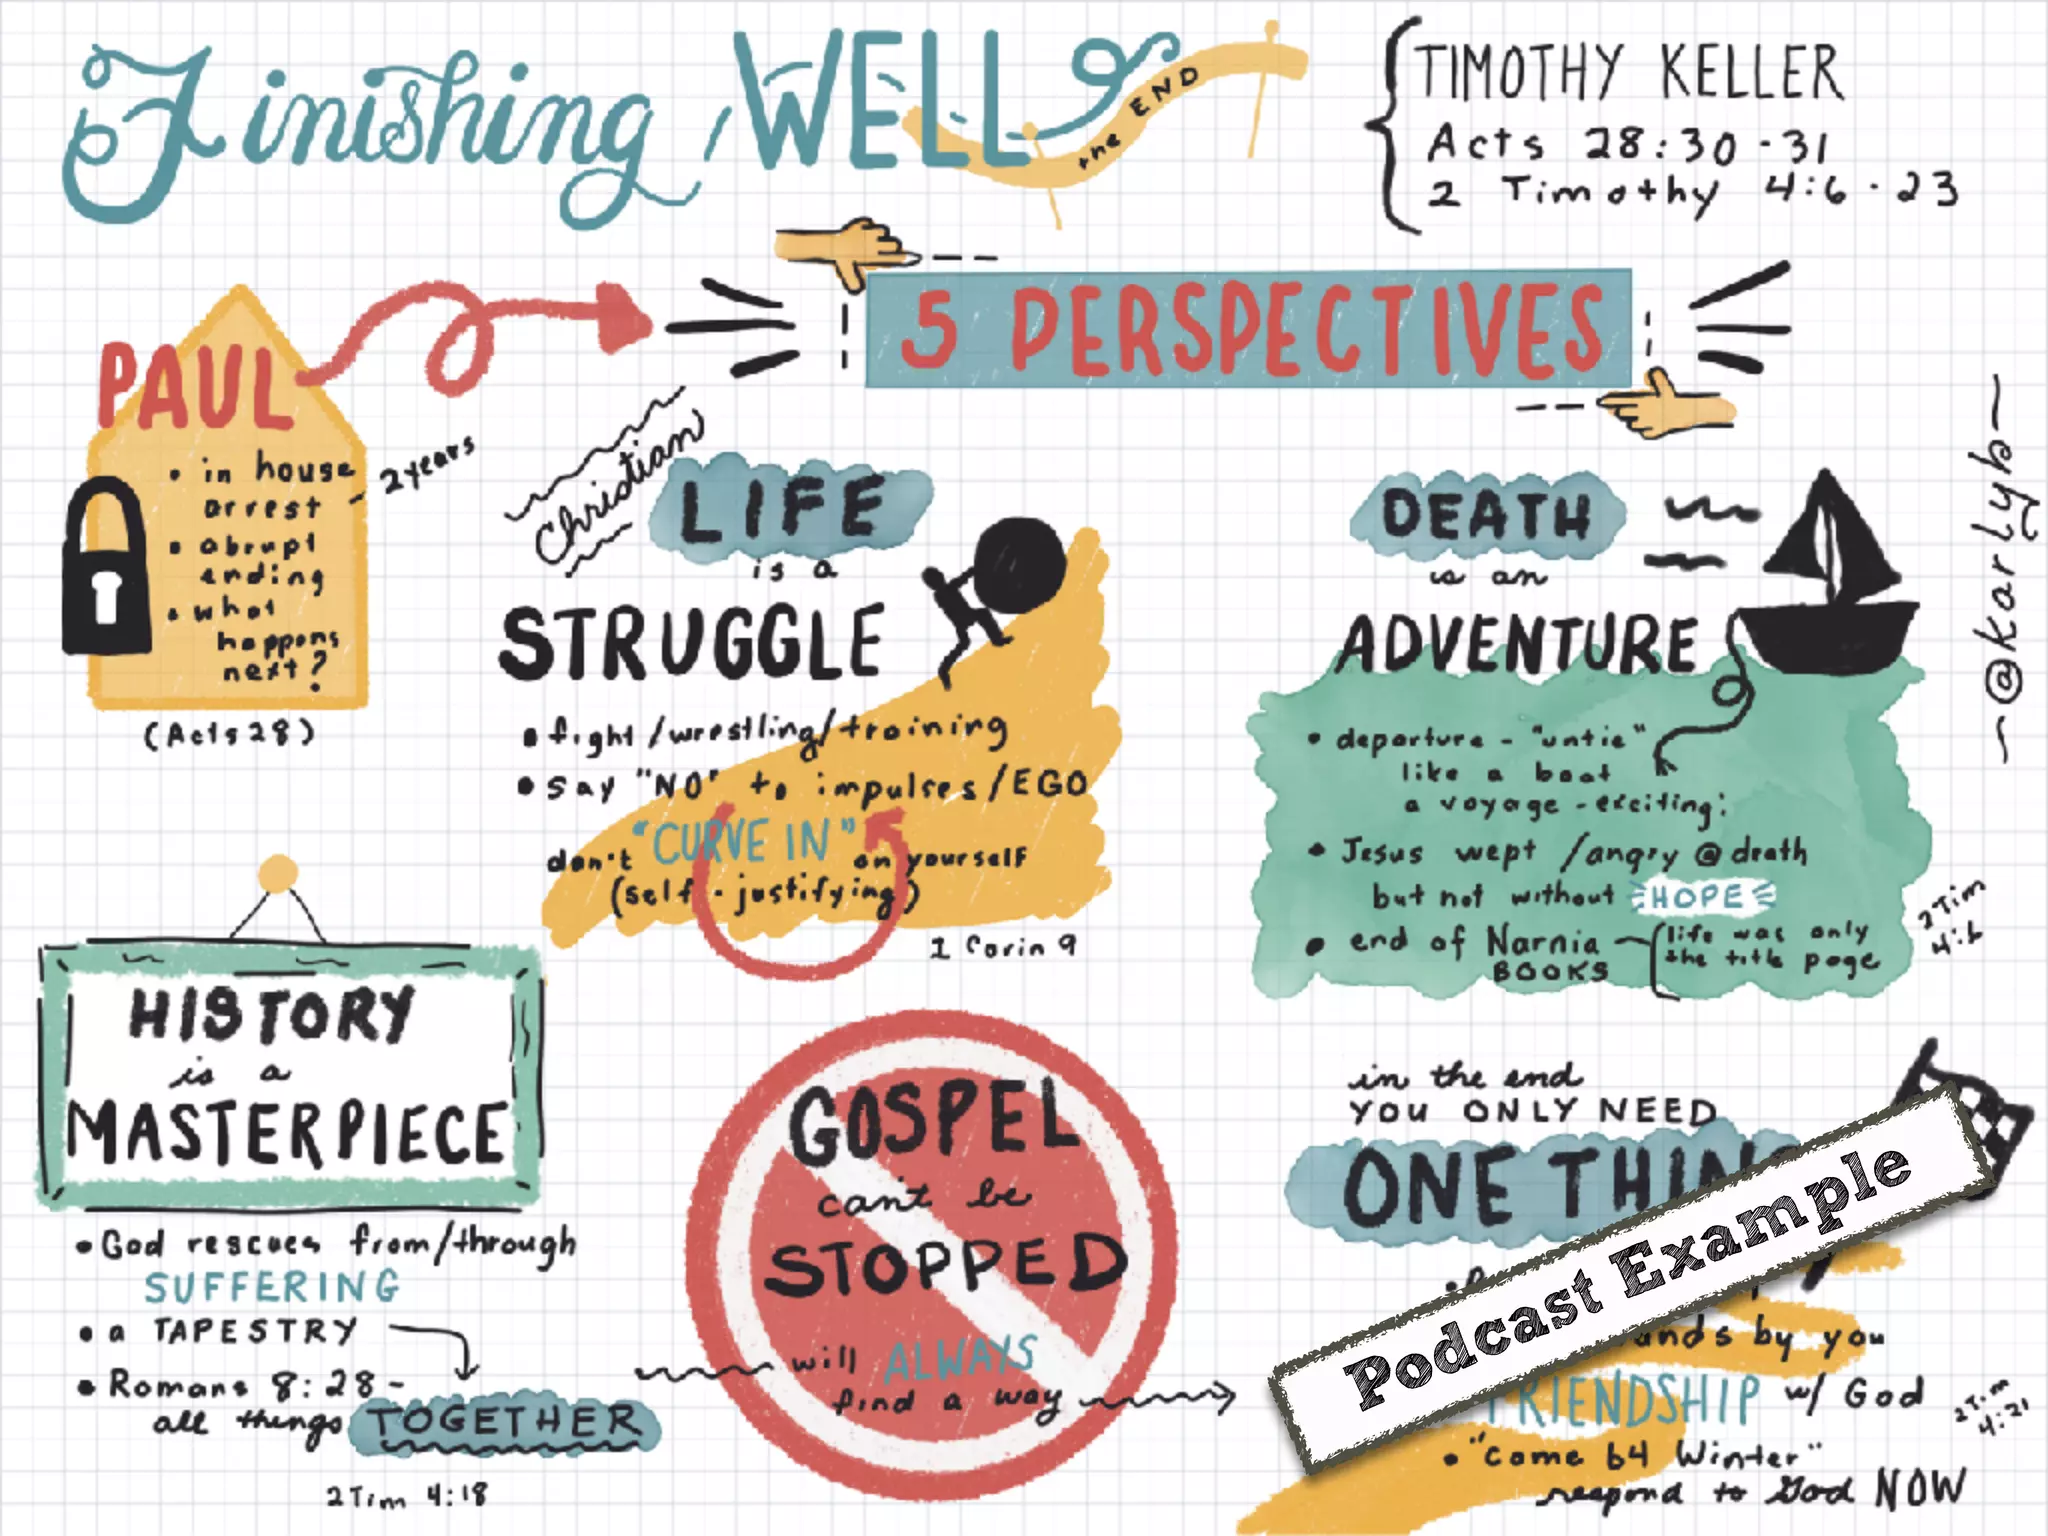 Finishing WELL
the END
TIMOTHY KELLER
Acts 28:30-31
2 Timothy 4:6-23
5 PERSPECTIVES
PAUL
• in house
arrest - 2 years
• abrupt
ending
• what
happens
next?
(Acts 28)
Christian
LIFE
is a
STRUGGLE
• fight/wrestling/training
• say "NO" to impulses/EGO
don't "CURVE IN" on yourself
(self-justifying)
1 Corin 9
DEATH
is an
ADVENTURE
• departure - "untie"
like a boat
a voyage - exciting!
• Jesus wept /angry @ death
but not without HOPE
• end of Narnia
BOOKS
life was only
the title page
2 Tim
4:6
~@karlyb~
HISTORY
is a
MASTERPIECE
• God rescues from/through
SUFFERING
• a TAPESTRY
• Romans 8:28-
all things TOGETHER
2 Tim 4:18
GOSPEL
can't be
STOPPED
will ALWAYS
find a way
in the end
YOU ONLY NEED
ONE THING
Podcast Example
by you
FRIENDSHIP w/ God
2 Tim
4:21
• "Come b4 Winter"
respond to God NOW